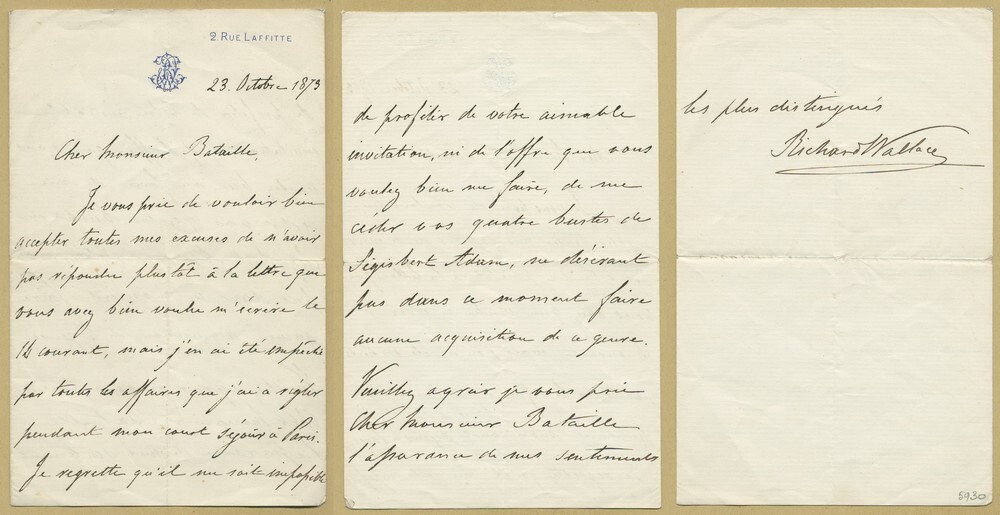 2. Rue Laffitte
23. Octobre 1873
Cher Monsieur Bataille,
Je vous prie de vouloir bien
accepter toutes mes excuses de n'avoir
pas répondu plus tôt à la lettre que
vous avez bien voulu m'écrire le
courant, mais j'en ai été empêché
par toutes les affaires que j'ai à régler
pendant mon court séjour à Paris.
Je regrette qu'il me soit impossible
de profiter de votre aimable
invitation, ni de l'offre que vous
voulez bien me faire, de me
céder vos quatre bustes de
Sigisbert Adam, ne désirant
pas dans ce moment faire
aucune acquisition de ce genre.
Veuillez agréer je vous prie
Cher Monsieur Bataille
l'assurance de mes sentiments
les plus distingués
Richard Wallace
5930